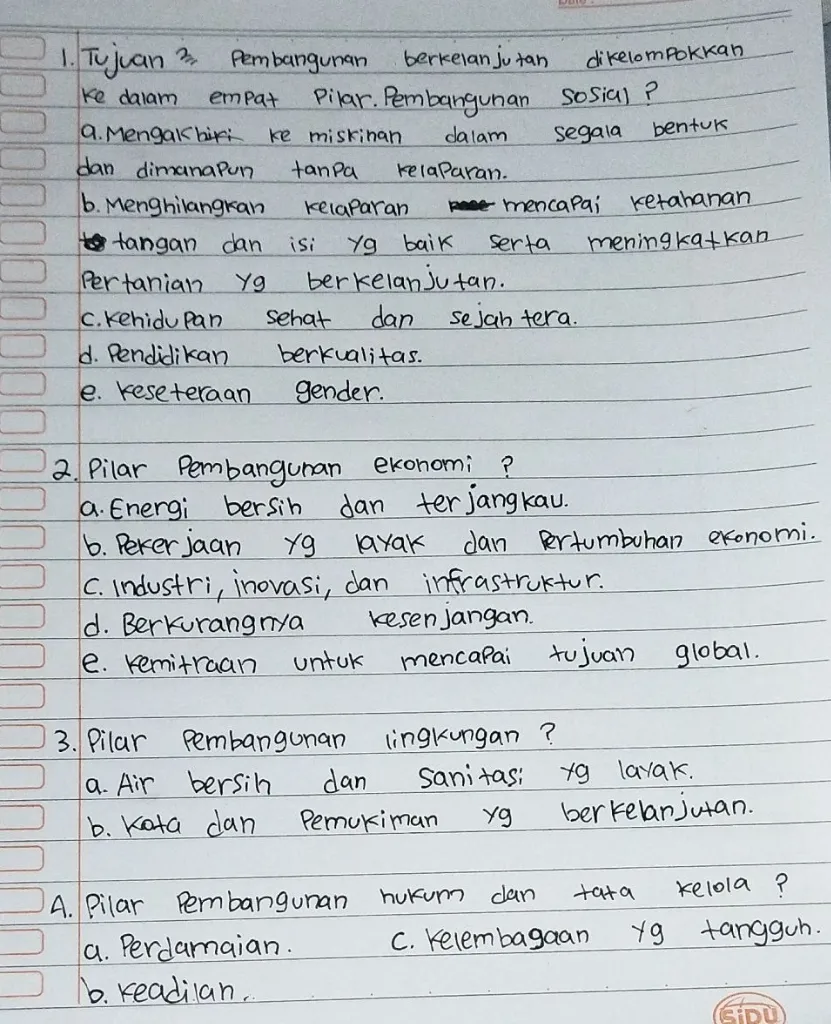 1. Tujuan 2 Pembangunan berkelanjutan dikelompokkan
ke dalam empat Pilar. Pembangunan sosial ?
a. Mengakhiri ke miskinan dalam segala bentuk
dan dimanapun tanpa kelaparan.
b. Menghilangkan kelaparan mencapai ketahanan
tangan dan isi yg baik serta meningkatkan
Pertanian yg berkelanjutan.
c. Kehidupan sehat dan sejahtera.
d. Pendidikan berkualitas.
e. keseteraan gender.
2. Pilar Pembangunan ekonomi ?
a. Energi bersih dan terjangkau.
b. Pekerjaan yg layak dan Pertumbuhan ekonomi.
c. Industri, inovasi, dan infrastruktur.
d. Berkurangnya kesenjangan.
e. kemitraan untuk mencapai tujuan global.
3. Pilar Pembangunan lingkungan ?
a. Air bersih dan sanitasi yg layak.
b. Kota dan Pemukiman yg berkelanjutan.
4. Pilar Pembangunan hukum dan tata kelola ?
a. Perdamaian. c. Kelembagaan yg tangguh.
b. keadilan.
SiDU